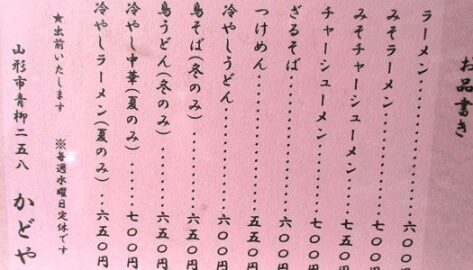 お品書き
ラーメン・・・・・・・・・・・・六〇〇円
みそラーメン・・・・・・・・・・七〇〇円
みそチャーシューメン・・・・七五〇円
チャーシューメン・・・・・・・・七〇〇円
ざるそば・・・・・・・・・・・・六〇〇円
つけめん・・・・・・・・・・・・五五〇円
冷やしうどん・・・・・・・・・・六〇〇円
鳥そば(冬のみ)・・・・・・・・六五〇円
鳥うどん(冬のみ)・・・・・・六五〇円
冷やし中華(夏のみ)・・・・七〇〇円
冷やしラーメン(夏のみ)・・・六五〇円
★出前いたします ※毎週水曜日定休です
山形市青柳二五八 かどや